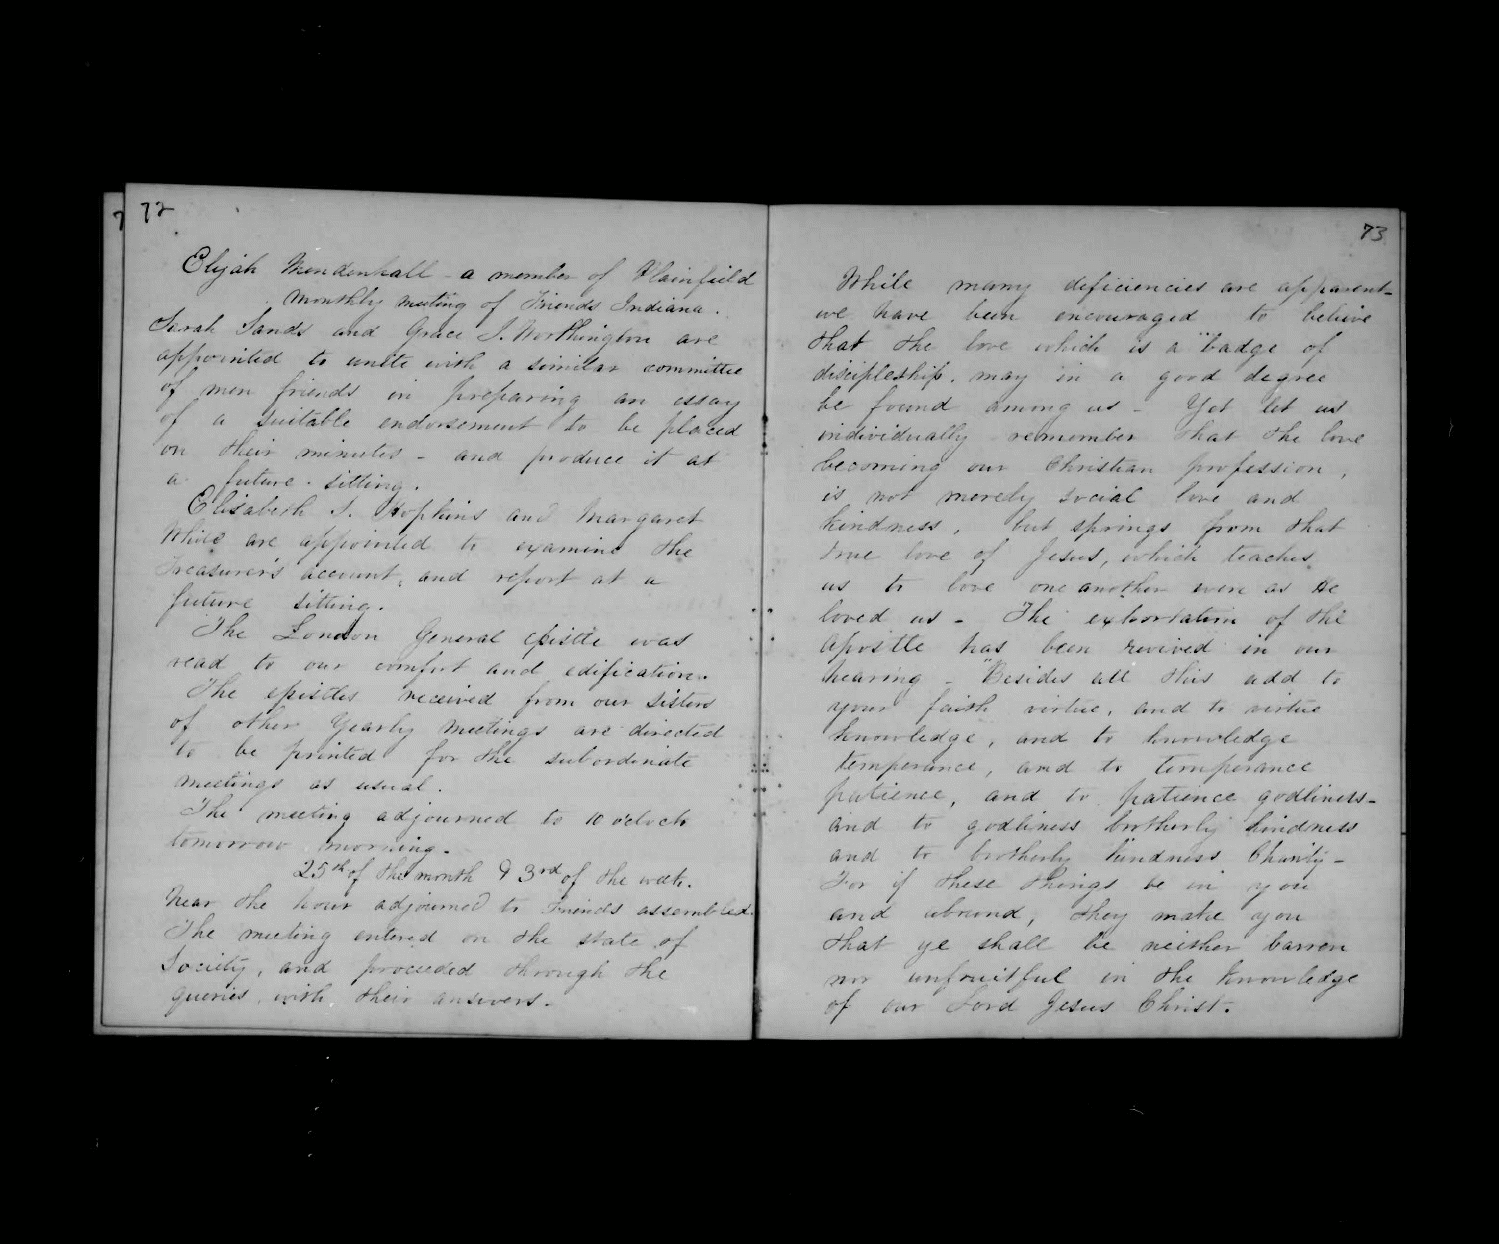 72
Elijah Mendenhall - a member of Plainfield
monthly meeting of Friends Indiana.
Sarah Sands and Grace S. Worthington are
appointed to unite with a similar committee
of men friends in preparing an essay
of a suitable endorsement to be placed
on their minutes - and produce it at
a future sitting.
Elisabeth S. Hopkins and Margaret
White are appointed to examine the
Treasurer's account, and report at a
future sitting.
The London General epistle was
read to our comfort and edification.
The epistles received from our sisters
of other Yearly meetings are directed
to be printed for the subordinate
meetings as usual.
The meeting adjourned to 10 o'clock
tomorrow morning.
25th of the month & 3rd of the week.
Near the hour adjourned to Friends assembled.
The meeting entered on the state of
Society, and proceeded through the
queries with their answers.
73
While many deficiencies are apparent
we have been encouraged to believe
that the love which is a "badge of
discipleship. may in a good degree
be found among us - Yet let us
individually remember that the love
becoming our Christian profession,
is not merely social love and
kindness, but springs from that
true love of Jesus, which teaches
us to love one another even as He
loved us - The exhortation of the
Apostle has been revived in our
hearing - "Besides all this add to
your faith virtue, and to virtue
knowledge, and to knowledge
temperance, and to temperance
patience, and to patience godliness-
and to godliness brotherly kindness
and to brotherly kindness Charity-
For if these things be in you
and abound, they make you
that ye shall be neither barren
nor unfruitful in the knowledge
of our Lord Jesus Christ.